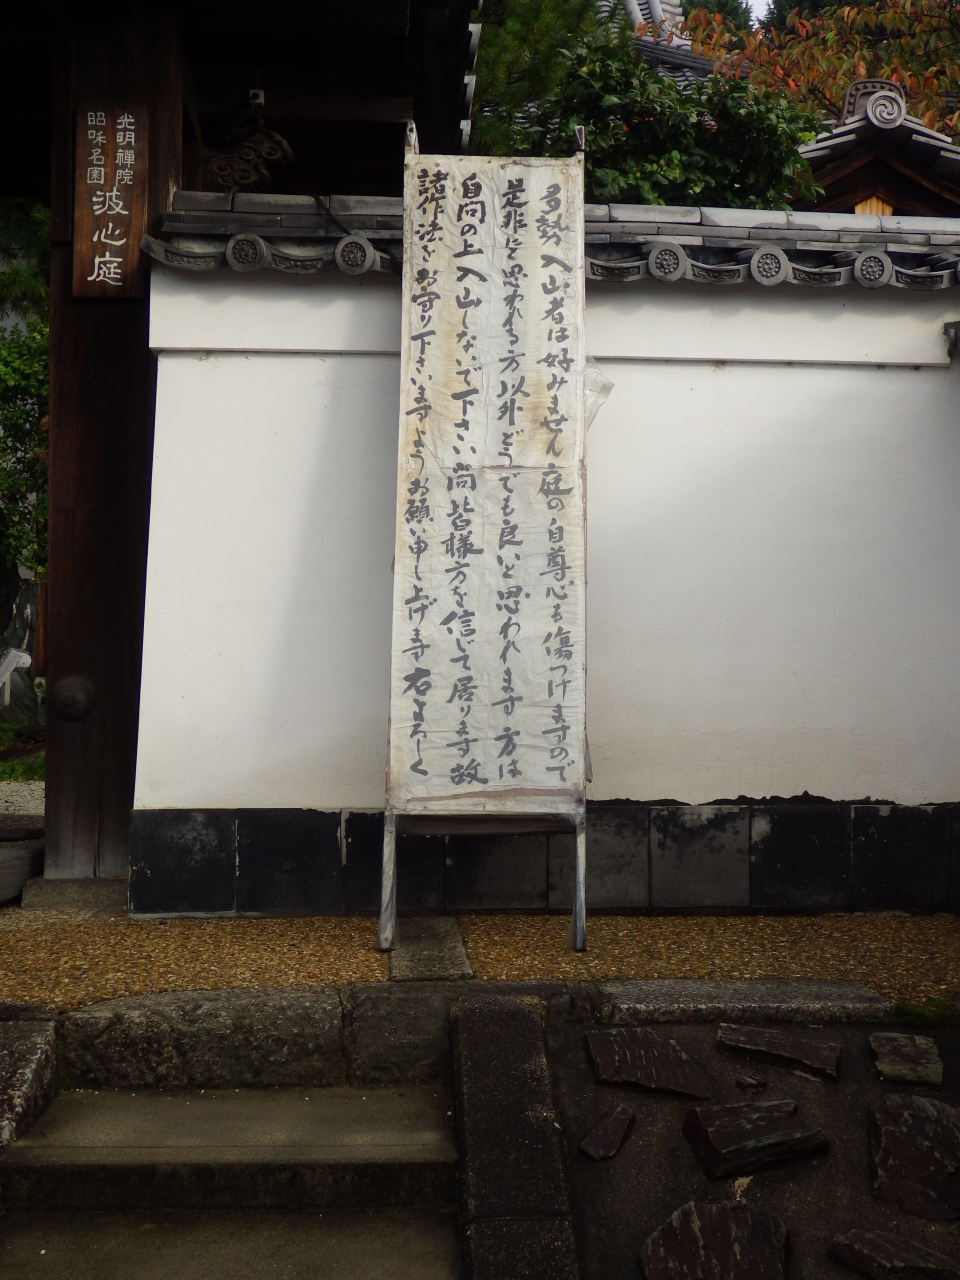 光明禪院
昭和名園
波心庭
多勢入山者は好みません庭の自尊心も傷つけますので
是非にと思われる方以外どうでも良いと思われます方は
自問の上入山しないで下さい尚皆様方を信じて居ります故
諸作法をお守り下さいますようお願い申し上げます右よろしく